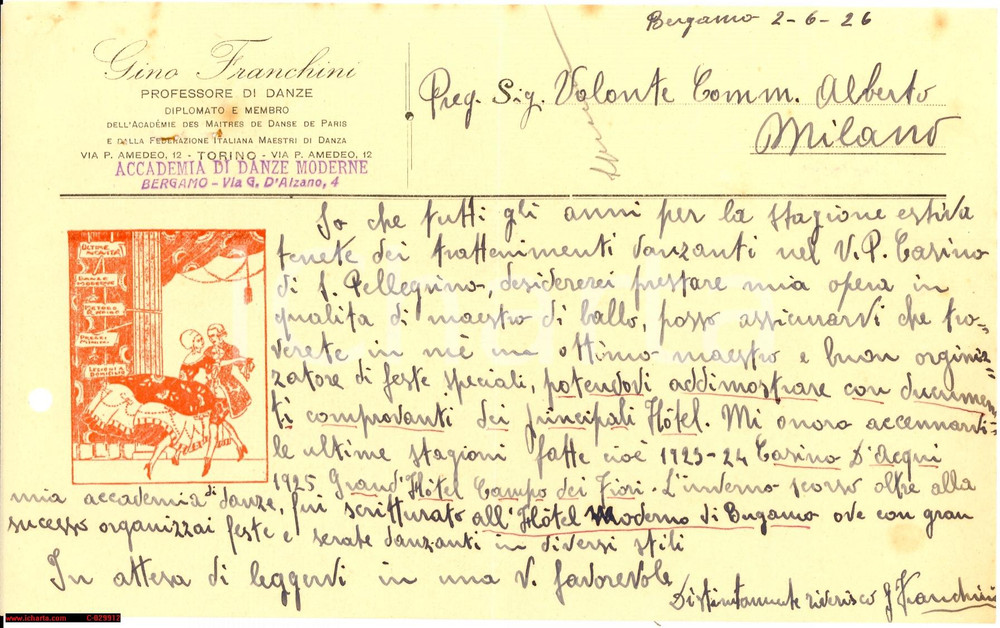 Bergamo 2-6-26
Gino Franchini
PROFESSORE DI DANZE
DIPLOMATO E MEMBRO
DELL'ACADÉMIE DES MAITRES DE DANSE DE PARIS
E DELLA FEDERAZIONE ITALIANA MAESTRI DI DANZA
VIA P. AMEDEO, 12 - TORINO - VIA P. AMEDEO, 12
ACCADEMIA DI DANZE MODERNE
BERGAMO - Via G. D'Alzano, 4
Preg. Sig. Volonte Comm. Alberto
Milano
ULTIME NOVITÀ
DANZE MODERNE
PREZZI MINIMI
LEZIONI A DOMICILIO
So che tutti gli anni per la stagione estiva
tenete dei trattenimenti danzanti nel V. P. Casino
di S. Pellegrino, desidererei prestare mia opera in
qualità di maestro di ballo, posso assicurarvi che tro=
verete in mè un ottimo maestro e buon orginiz=
zatore di feste speciali, potendovi addimostrare con ducumen=
ti comprovanti dei principali Hôtel. Mi onoro accennarti=
le ultime stagioni fatte cioè 1923-24 Casino D'Acqui
1925 Grand'Hôtel Campo dei Fiori. L'inverno scorso oltre alla
mia accademia di danze, fui scritturato all'Hôtel Moderno di Bergamo ove con gran
successo organizzai feste e serate danzanti in diversi stili
In attesa di leggervi in una V. favorevole
Distintamente riverisco G Franchini
icharta
www.icharta.com C-829912